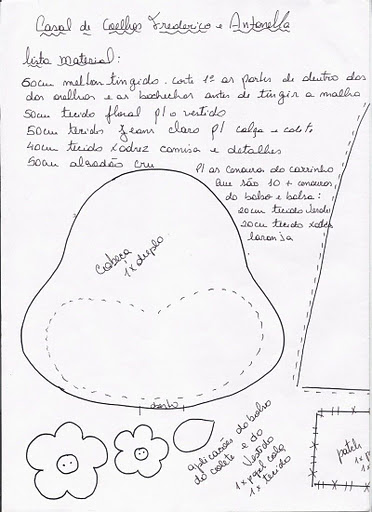 Casal de Coelhos Frederico e Antonella
Lista material:
50cm melton tingido. corte 1º as partes de dentro das
das orelhas e as bochechas antes de tingir a malha
50cm tecido floral p/ o vestido
50cm tecido Jeans claro p/ calça e colete
40cm tecido xadrez camisa e detalhes
50cm algodão cru
P/ as cenouras do carrinho
que são 10 + cenouras
do bolso e bolsa:
20cm tecido verde
20cm tecido xadrez
laranja
Cabeça
1x duplo
aplicações do bolso
do colete e do
vestido
1x papel cola
1x tecido
patch
1x
1x